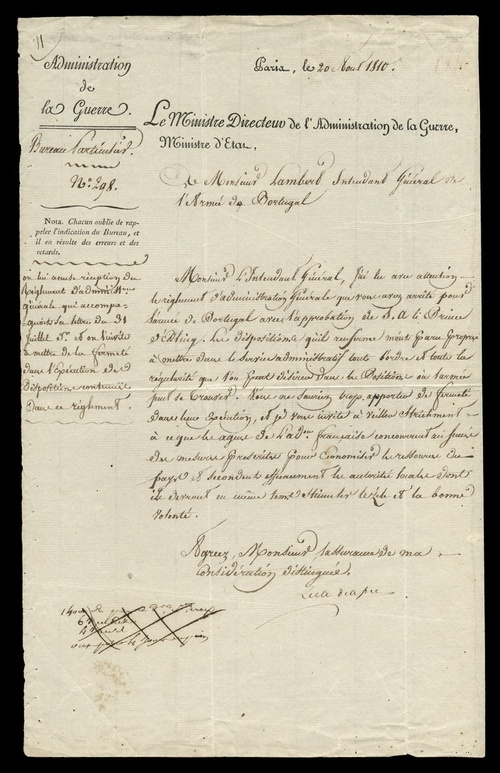 Administration
de
la Guerre.
Bureau Particulier.
N.º 298.
Nota. Chacun oublie de rap-
peler l'indication du Bureau, et
il en résulte des erreurs et des
retards.
on lui accuse réception du
Règlement d'administ.on
générale qui accompa-
gnait sa lettre du 31
Juillet d.er et on l'invite
à mettre de la fermeté
dans l'exécution des
Dispositions contenues
dans ce règlement.
Paris, le 20 Aout 1810.
Le Ministre Directeur de l'Administration de la Guerre,
Ministre d'État,
A Monsieur Lambert Intendant Général de
l'Armée de Portugal
Monsieur L'Intendant Général, j'ai lu avec attention
le règlement d'administration Générale que vous avez arrêté pour
l'armée de Portugal avec l'approbation de S. A. le Prince
d'Essling. Les dispositions qu'il renferme m'ont paru propres
à mettre dans le service administratif tout l'ordre et toute la
régularité que l'on peut désirer dans la Position où l'armée
peut se trouver. Vous ne sauriez trop apporter de fermeté
dans leur exécution, et je vous invite à veiller strictement
à ce que les agens de l'ad.on française concourent au succès
des mesures prescrites pour économiser les ressources du
pays et secondent efficacement les autorités locales dont
ils devront en même tems stimuler le zèle et la bonne
volonté.
Agréez, Monsieur l'assurance de ma
considération distinguée.